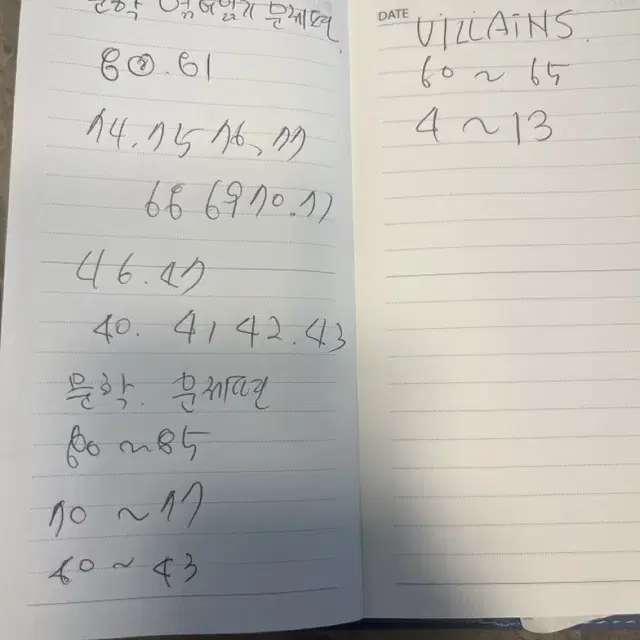 문학 문제편
80 ⑧. 81
74. 75 76, 77
68 69 70. 71
46. 47
40. 41 42. 43
문학. 문제편
80 ~ 85
70 ~ 77
40 ~ 43
DATE
ViLLAiNS.
60 ~ 65
4 ~ 13